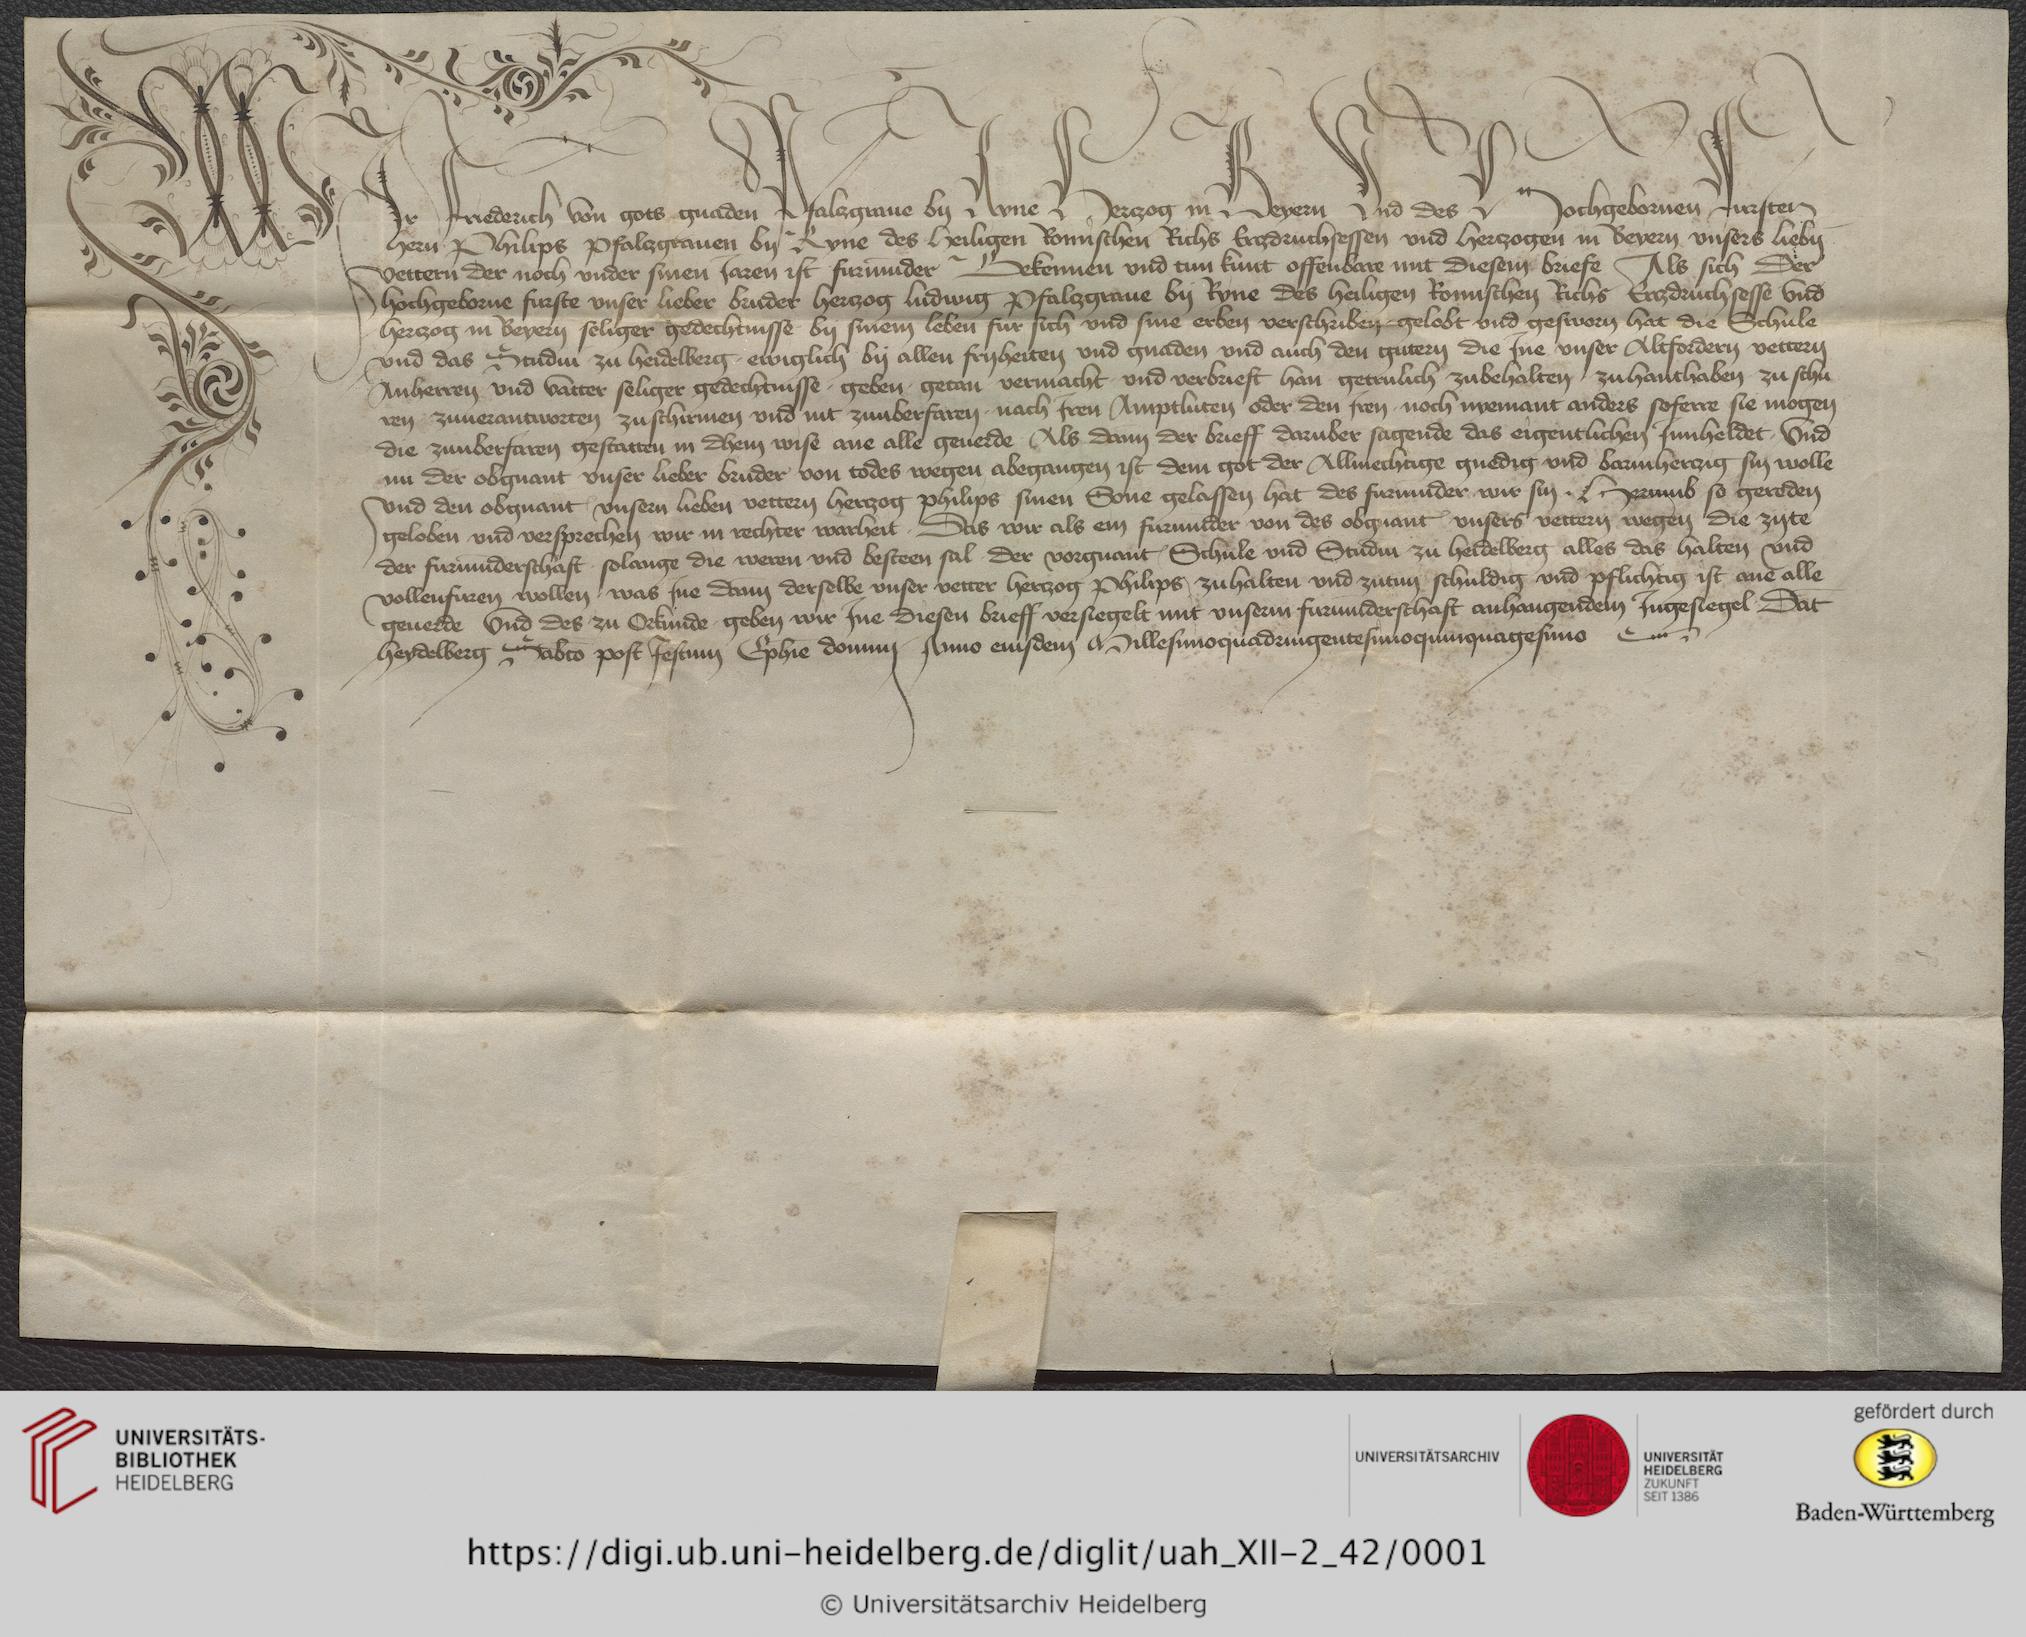 WJr Friederich von gots gnaden Pfalzgraue by Ryne Hertzog in Beyern Vnd des Hochgebornen fursten
hern Philips Pfalzgrauen by Ryne des heiligen Romischen Richs Ertzdruchsessen vnd hertzogen in Beyern vnsers lieben
vettern der noch vnder sinen Jaren ist furmunder Bekennen vnd tun kunt offenbare mit diesem briefe Als sich Der
hochgeborne furste vnser lieber bruder hertzog ludwig Pfalzgraue by Ryne des heiligen Romischen Richs Ertzdruchsesse vnd
hertzog in Beyern seliger gedechtnisse by sinem leben fur sich vnd sine erben verschriben gelobt vnd gesworn hat die Schule
vnd das Studiu zu heidelberg ewiglich by allen fryheiten vnd gnaden vnd auch den gutern die Jne vnser Altfordern vettern
Anherren vnd vatter seliger gedechtnisse geben getan vermacht vnd verbrieft han getrulich zubehalten zuhanthaben zu schu
ren zuuerantworten zuschirmen vnd nit zuuberfaren nach Jren Amptluten oder den Jren noch nyemant anders soferre sie mogen
die zuuberfaren gestatten in dhein wise ane alle geuerde Als dann der brieff daruber sagende das eigentlichen Jnnheldet Vnd
nu der obgnant vnser lieber bruder von todes wegen abegangen ist dem got der Allmechtige gnedig vnd barmhertzig sin wolle
vnd den obgnant vnsern lieben vettern hertzog philips sinen Sone gelassen hat des furmunder wir sin Herumb so gereden
geloben vnd versprechen wir in rechter warheit Das wir als ein furmunder von des obgnant vnsers vettern wegen die zyte
der furmunderschaft solange die weren vnd besteen sal der vorgnant Schule vnd Studiu zu heidelberg alles das halten vnd
vollenfuren wollen was Jne dann derselbe vnser vetter hertzog Philips zuhalten vnd zutun schuldig vnd pflichtig ist ane alle
geuerde Vnd des zu Orkunde geben wir Jne diesen brieff versiegelt mit vnserm furmunderschaft anhangendem Jngesiegel Dat
heydelberg Sabto post festum Ephie domini Anno eiusdem Millesimoquadringentesimoquinquagesimo
UNIVERSITÄTS-
BIBLIOTHEK
HEIDELBERG
UNIVERSITÄTSARCHIV
UNIVERSITÄT
HEIDELBERG
ZUKUNFT
SEIT 1386
gefördert durch
Baden-Württemberg
https://digi.ub.uni-heidelberg.de/diglit/uah_XII-2_42/0001
© Universitätsarchiv Heidelberg